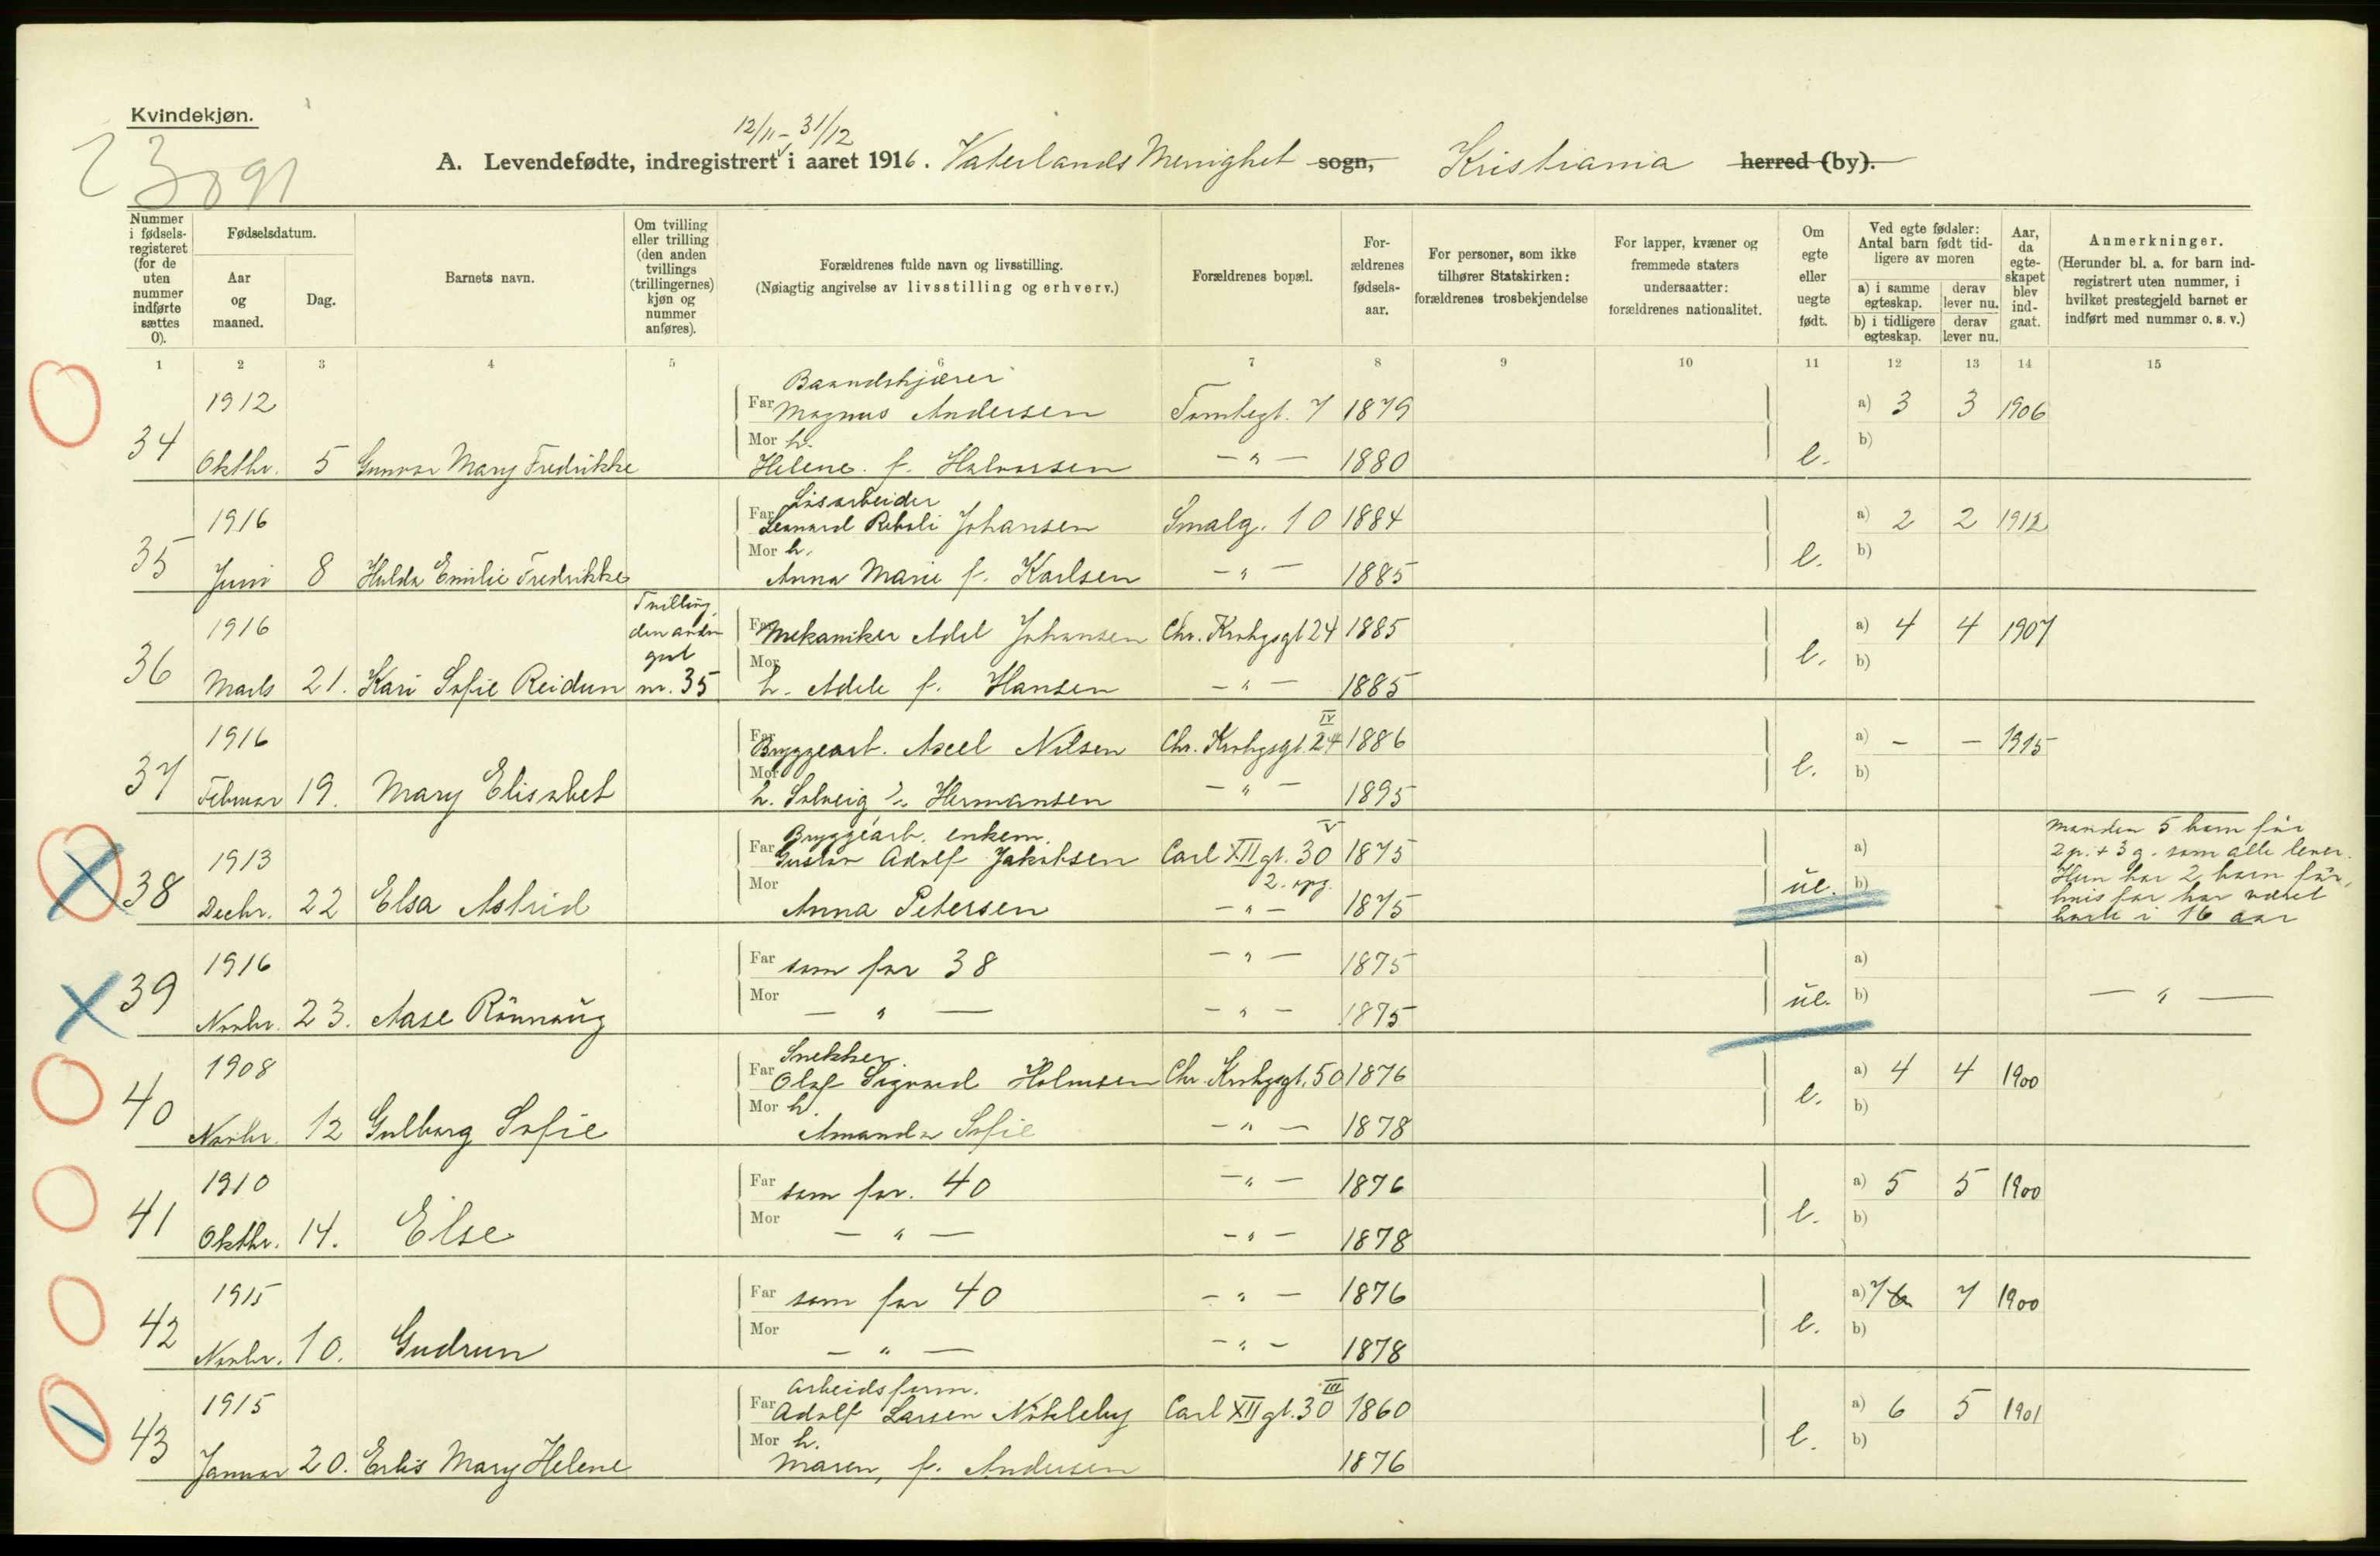 Kvindekjøn.
23091
12/11 - 31/12
A. Levendefødte, indregistrert i aaret 1916. Vaterlands Menighet sogn, Kristiania herred (by).
Nummer i fødsels-registeret (for de uten nummer indførte sættes 0).
Fødselsdatum.
Aar og maaned.
Dag.
Barnets navn.
Om tvilling eller trilling (den anden tvillings (trillingernes) kjøn og nummer anføres).
Forældrenes fulde navn og livsstilling.
(Nøiagtig angivelse av livsstilling og erhverv.)
Forældrenes bopæl.
For-ældrenes fødsels-aar.
For personer, som ikke tilhører Statskirken: forældrenes trosbekjendelse
For lapper, kvæner og fremmede staters undersaatter: forældrenes nationalitet.
Om egte eller uegte født.
Ved egte fødsler: Antal barn født tid-ligere av moren
a) i samme egteskap.
derav lever nu.
b) i tidligere egteskap.
derav lever nu.
Aar, da egte-skapet blev ind-gaat.
Anmerkninger.
(Herunder bl. a. for barn ind-registrert uten nummer, i hvilket prestegjeld barnet er indført med nummer o. s. v.)
1 2 3 4 5 6 7 8 9 10 11 12 13 14 15
Baandskjærer
1912 Far Magnus Andersen Tomtegt. 7 1879 a) 3 3 1906
34 Mor h. b)
Oktbr. 5 Gunvor Mary Fredrikke Helene f. Halvorsen - " - 1880 e.
Løsarbeider
1916 Far Leonard Johansen Smalg. 10 1884 a) 2 2 1912
35 Mor h. b)
Juni 8 Hulda Emilie Fredrikke Anna Marie f. Karlsen - " - 1885 e.
Tvilling
1916 den anden Far Mekaniker Adel Johansen Chr. Krohgsgt 24 1885 a) 4 4 1907
36 gut Mor e. b)
Marts 21. Kari Sofie Reidun nr. 35 h. Adele f. Hansen - " - 1885
IV
1916 Far Bryggearb. Axel Nilsen Chr. Krohgsgt. 24 1886 a) - - 1915
37 Mor e. b)
Februar 19. Mary Elisabet h. Solveig f. Hermansen - " - 1895
Bryggearb. enkem. V Manden 5 barn før
1913 Far Gustav Adolf Jakobsen Carl XII gt. 30 1875 a) 2 p. + 3 g. som alle lever.
38 Mor 2. opg. ue. b) Hun har 2 barn før,
Decbr. 22 Elsa Astrid Anna Petersen - " - 1875 hvis far har været
borte i 16 aar
1916 Far som for 38 - " - 1875 a)
39 Mor ue. b) - " -
Novbr. 23. Aase Rönnaug - " - - " - 1875
Snekker
1908 Far Olaf Sigvard Holmsen Chr. Krohgsgt. 50 1876 a) 4 4 1900
40 Mor h. e. b)
Novbr. 12 Gulborg Sofie Amanda Sofie - " - 1878
1910 Far som for. 40 - " - 1876 a) 5 5 1900
41 Mor e. b)
Oktbr. 14. Else - " - - " - 1878
1915 Far som for 40 - " - 1876 a) 7 6 7 1900
42 Mor e. b)
Novbr. 10. Gudrun - " - - " - 1878
Arbeidsform. III
1915 Far Adolf Larsen Nökleby Carl XII gt. 30 1860 a) 6 5 1901
43 Mor h. e. b)
Januar 20. Mary Helene Maren, f. Andersen 1876